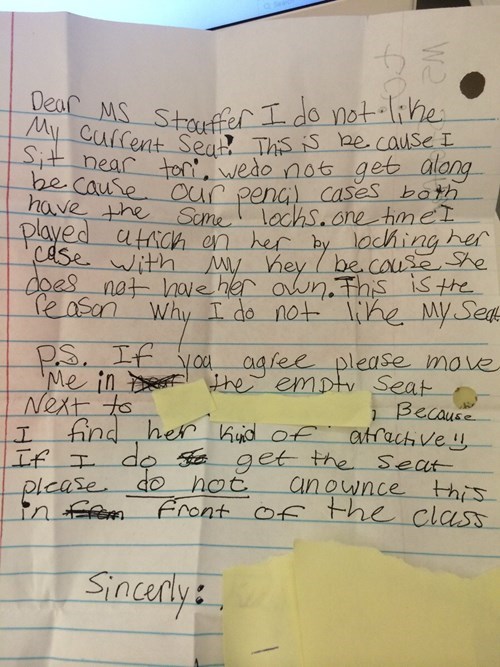 Dear MS Stouffer I do not like
My current Seat. This is be cause I
Sit near tori. we do not get along
be cause our pencil cases both
have the same locks. one time I
played a trick on her by locking her
case with My key / be cause she
does not have her own. This is the
reason why I do not like My Seat

P.S. If you agree please move
Me in the empty Seat
Next to Because
I find her Kind of atractive!!
If I do get the seat
please do not anownce this
in front of the class

Sincerly: